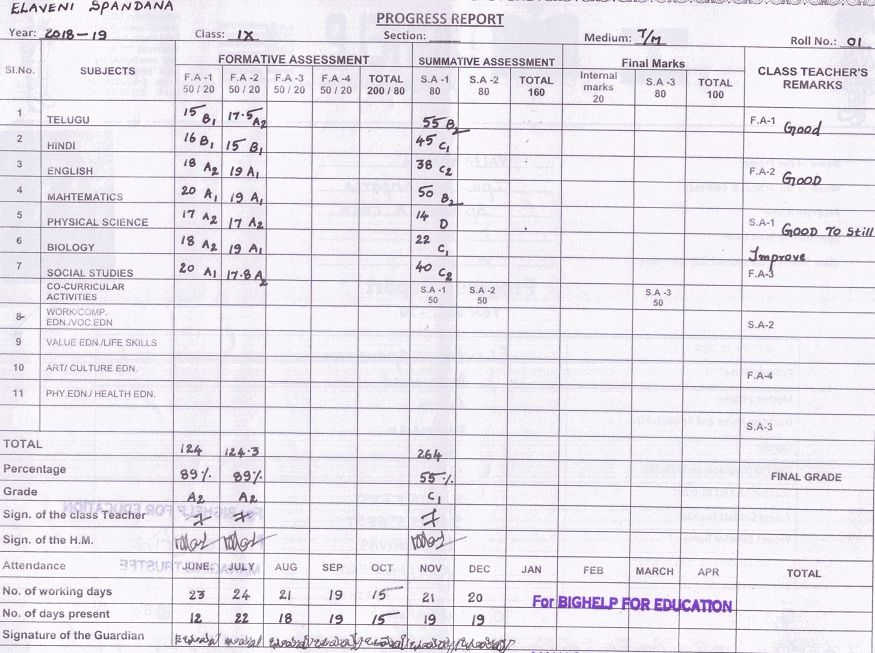 ELAVENI SPANDANA
PROGRESS REPORT
Year: 2018-19 Class: IX Section: Medium: T/M Roll No.: 01
Sl.No. SUBJECTS FORMATIVE ASSESSMENT SUMMATIVE ASSESSMENT Final Marks CLASS TEACHER'S REMARKS
F.A -1 50 / 20 F.A -2 50 / 20 F.A -3 50 / 20 F.A -4 50 / 20 TOTAL 200 / 80 S.A -1 80 S.A -2 80 TOTAL 160 Internal marks 20 S.A -3 80 TOTAL 100
1 TELUGU 15 B1 17.5 A2 55 B2 F.A-1 Good
2 HINDI 16 B1 15 B1 45 C1
3 ENGLISH 18 A2 19 A1 38 C2 F.A-2 GOOD
4 MAHTEMATICS 20 A1 19 A1 50 B2
5 PHYSICAL SCIENCE 17 A2 17 A2 14 D S.A-1 GOOD TO Still
6 BIOLOGY 18 A2 19 A1 22 C1 Improve
7 SOCIAL STUDIES 20 A1 17.8 A2 40 C2 F.A-3
CO-CURRICULAR ACTIVITIES S.A -1 50 S.A -2 50 S.A -3 50
8 WORK/COMP. EDN./VOC.EDN S.A-2
9 VALUE EDN./LIFE SKILLS
10 ART/ CULTURE EDN. F.A-4
11 PHY.EDN./ HEALTH EDN.
S.A-3
TOTAL 124 124.3 264
Percentage 89% 89% 55% FINAL GRADE
Grade A2 A2 C1
Sign. of the class Teacher
Sign. of the H.M.
Attendance JUNE JULY AUG SEP OCT NOV DEC JAN FEB MARCH APR TOTAL
No. of working days 23 24 21 19 15 21 20
For BIGHELP FOR EDUCATION
No. of days present 12 22 18 19 15 19 19
Signature of the Guardian